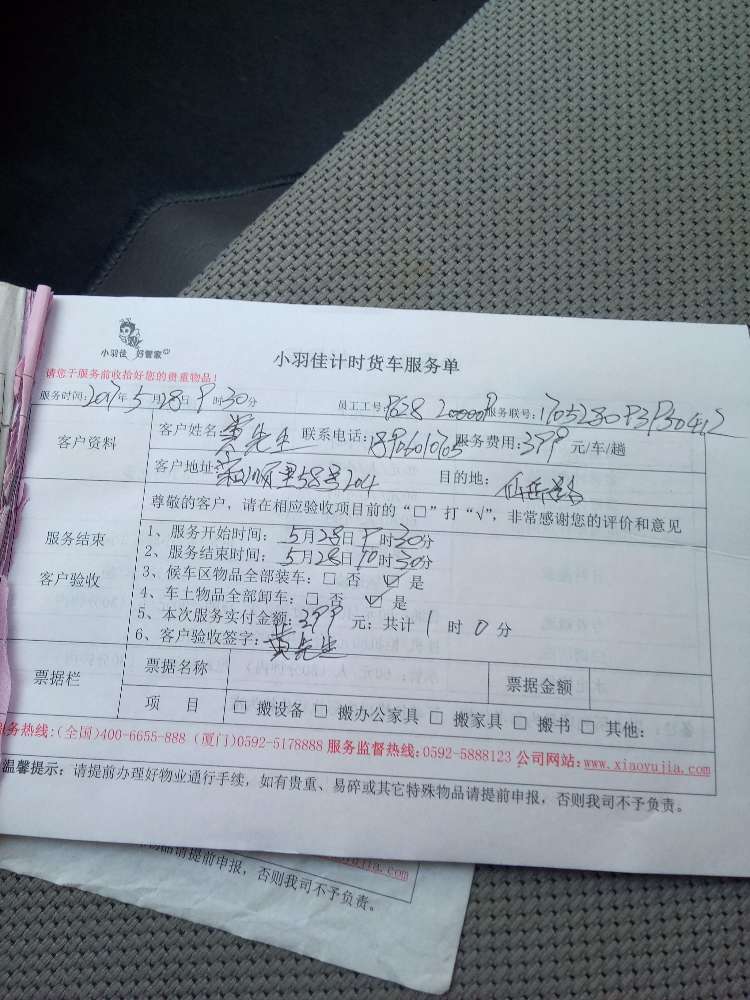 小羽佳 好管家
小羽佳计时货车服务单
请您于服务前收拾好您的贵重物品！
服务时间：2017年5月28日9时30分 员工工号 服务联号：
客户资料
客户姓名 黄先生 联系电话： 服务费用：399元/车/趟
客户地址 58号204 目的地：
尊敬的客户，请在相应验收项目前的“□”打“√”，非常感谢您的评价和意见
服务结束
客户验收
1、服务开始时间：5月28日9时30分
2、服务结束时间：5月28日10时30分
3、候车区物品全部装车：□ 否 ☑ 是
4、车上物品全部卸车：□ 否 ☑ 是
5、本次服务实付金额：399元；共计1时0分
6、客户验收签字：黄先生
票据栏
票据名称 票据金额
项 目 □ 搬设备 □ 搬办公家具 □ 搬家具 □ 搬书 □ 其他：
服务热线：(全国)400-6655-888 (厦门)0592-5178888 服务监督热线：0592-5888123 公司网站：www.xiaoyujia.com
温馨提示：请提前办理好物业通行手续，如有贵重、易碎或其它特殊物品请提前申报，否则我司不予负责。
yujia.com
物品请提前申报，否则我司不予负责。